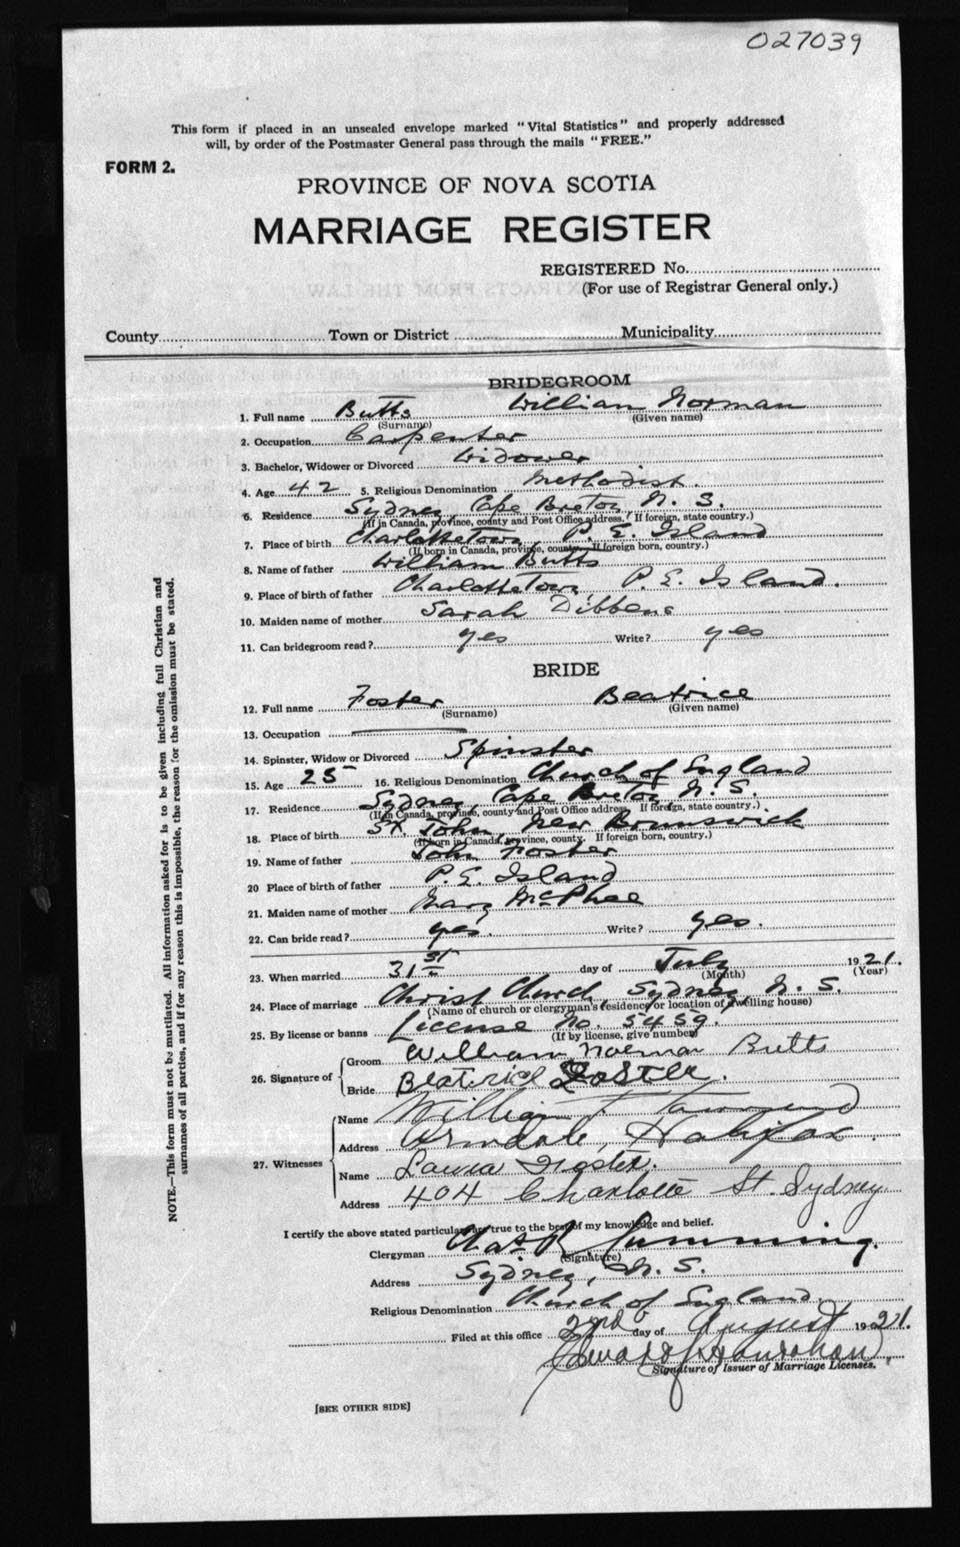 027039
This form if placed in an unsealed envelope marked "Vital Statistics" and properly addressed
will, by order of the Postmaster General pass through the mails "FREE."
FORM 2.
PROVINCE OF NOVA SCOTIA
MARRIAGE REGISTER
REGISTERED No.
(For use of Registrar General only.)
County Town or District Municipality
BRIDEGROOM
1. Full name Butts William Norman
(Surname) (Given name)
2. Occupation Carpenter
3. Bachelor, Widower or Divorced Widower
4. Age 42 5. Religious Denomination Methodist.
6. Residence Sydney, Cape Breton, N. S.
(If in Canada, province, county and Post Office address. If foreign, state country.)
7. Place of birth Charlottetown, P. E. Island
(If born in Canada, province, county. If foreign born, country.)
8. Name of father William Butts
9. Place of birth of father Charlottetown, P. E. Island.
10. Maiden name of mother Sarah Dibbens
11. Can bridegroom read? yes Write? yes
BRIDE
12. Full name Foster Beatrice
(Surname) (Given name)
13. Occupation
14. Spinster, Widow or Divorced Spinster
15. Age 25 16. Religious Denomination Church of England
17. Residence Sydney, Cape Breton, N. S.
(If in Canada, province, county and Post Office address. If foreign, state country.)
18. Place of birth St. John, New Brunswick
(If born in Canada, province, county. If foreign born, country.)
19. Name of father John Foster
20 Place of birth of father P. E. Island
21. Maiden name of mother Mary McPhee
22. Can bride read? yes. Write? yes.
23. When married 31st day of July 1921.
(Month) (Year)
24. Place of marriage Christ Church, Sydney, N. S.
(Name of church or clergyman's residence or location of dwelling house)
25. By license or banns License No. 5459.
(If by license, give number)
26. Signature of Groom William Norman Butts
Bride Beatrice Foster.
27. Witnesses
Name William F. Townsend
Address Armdale, Halifax.
Name Laura Foster.
Address 404 Charlotte St. Sydney
I certify the above stated particulars are true to the best of my knowledge and belief.
Clergyman Chas R Cumming.
(Signature)
Address Sydney, N. S.
Religious Denomination Church of England.
Filed at this office 22nd day of August 1921.
Edward
Signature of Issuer of Marriage Licenses.
[SEE OTHER SIDE]
NOTE.—This form must not be mutilated. All information asked for is to be given including full Christian and
surnames of all parties, and if for any reason this is impossible, the reason for the omission must be stated.